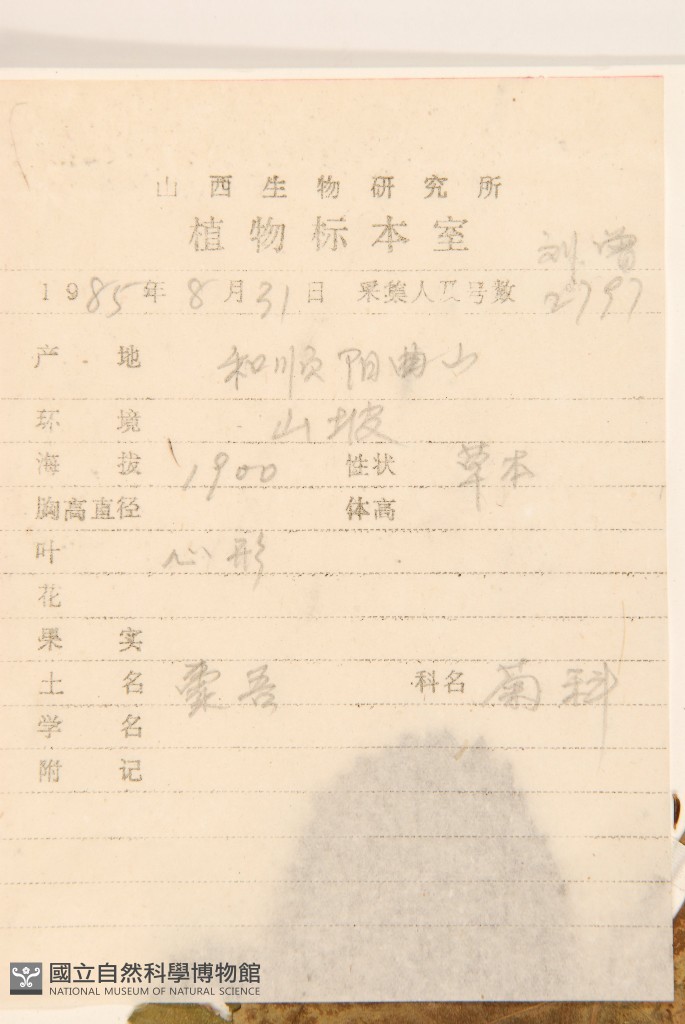 山西生物研究所
植物标本室
刘 曾
1985年 8月31日 采集人及号数 2797
产 地 和顺阳曲山
环 境 山坡
海 拔 1900 性状 草本
胸高直径 体高
叶 心形
花
果 实
土 名 橐吾 科名 菊科
学 名
附 记
國立自然科學博物館
NATIONAL MUSEUM OF NATURAL SCIENCE